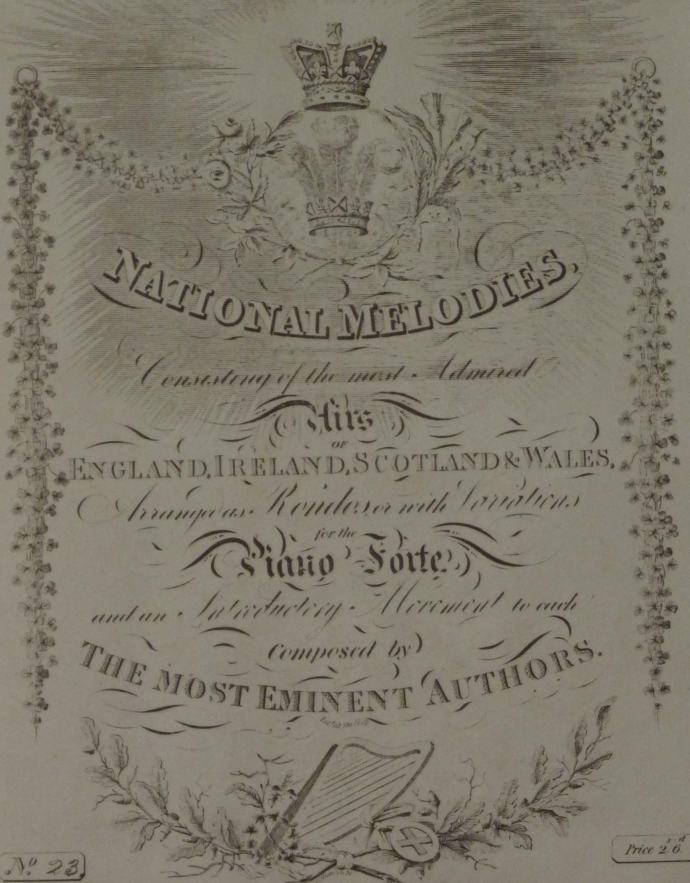 NATIONAL MELODIES,
Consisting of the most Admired
Airs
OF
ENGLAND, IRELAND, SCOTLAND & WALES,
Arranged as Rondos or with Variations
for the
Piano Forte
and an Introductory Movement to each
Composed by
THE MOST EMINENT AUTHORS.
No. 23.
Price 2/6